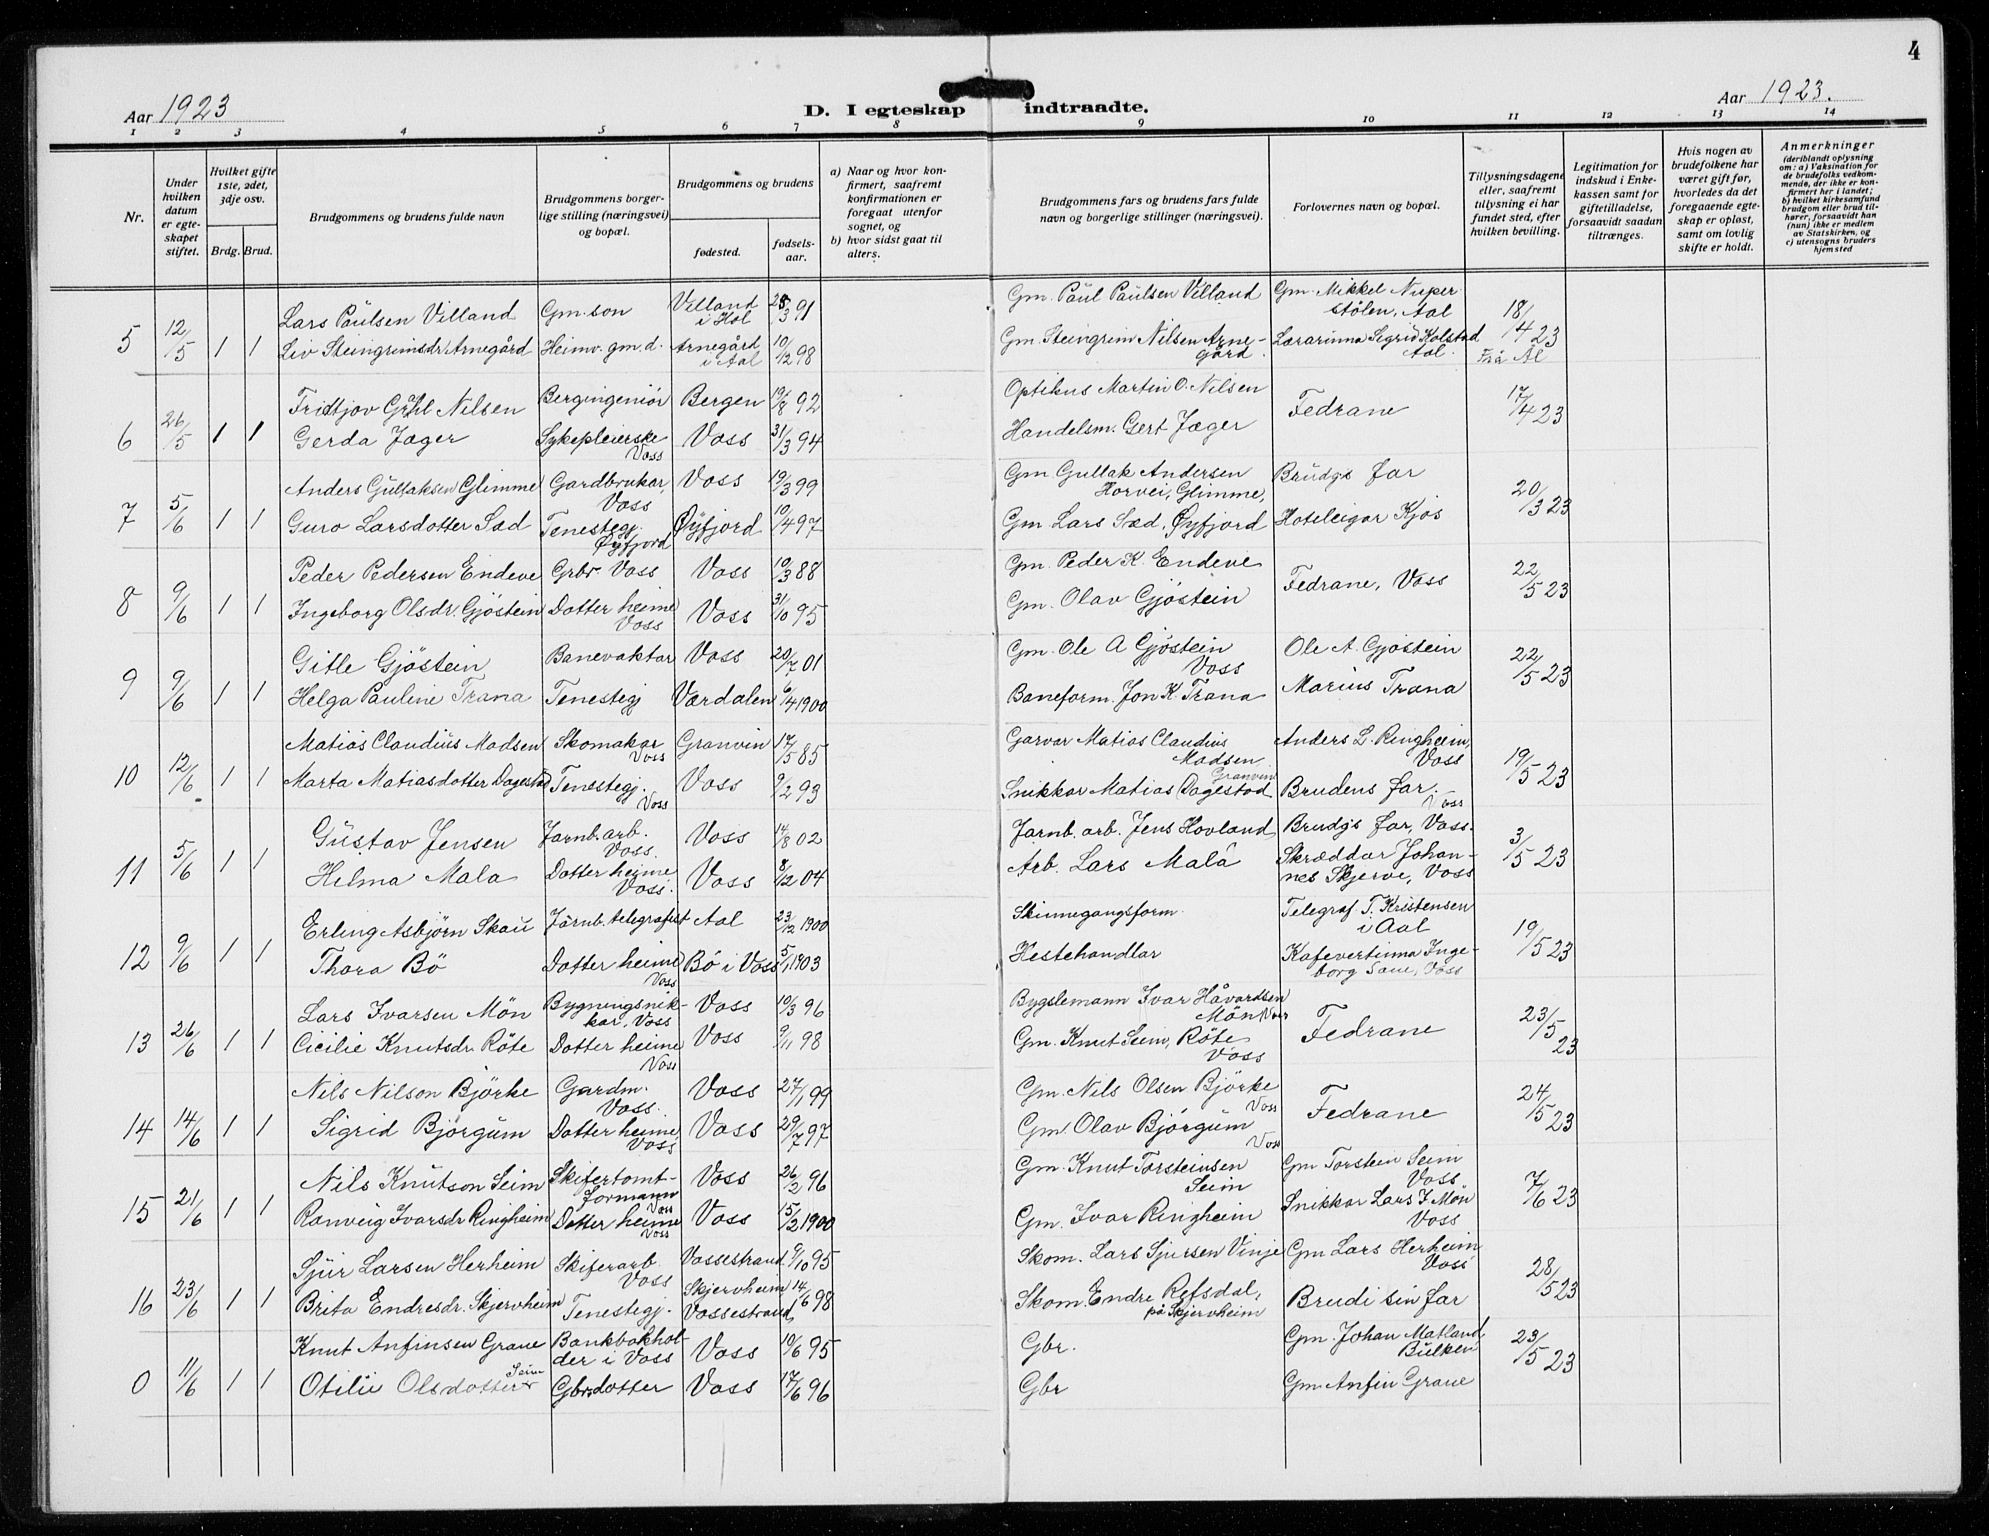 4
Aar 1923
D. I egteskap indtraadte.
Aar 1923.
1 2 3 4 5 6 7 8 9 10 11 12 13 14
Nr.
Under hvilken datum er egteskapet stiftet.
Hvilket gifte 1ste, 2det, 3dje osv.
Brdg. Brud.
Brudgommens og brudens fulde navn
Brudgommens borgerlige stilling (næringsvei) og bopæl.
Brudgommens og brudens
fødested.
fødselsaar.
a) Naar og hvor konfirmert, saafremt konfirmationen er foregaat utenfor sognet, og
b) hvor sidst gaat til alters.
Brudgommens fars og brudens fars fulde navn og borgerlige stillinger (næringsvei).
Forlovernes navn og bopæl.
Tillysningsdagene eller, saafremt tillysning ei har fundet sted, efter hvilken bevilling.
Legitimation for indskud i Enkekassen samt for giftetilladelse, forsaavidt saadan tiltrænges.
Hvis nogen av brudefolkene har været gift før, hvorledes da det foregaaende egteskap er opløst, samt om lovlig skifte er holdt.
Anmerkninger
(deriblandt oplysning om: a) Vaksination for de brudefolks vedkommende, der ikke er konfirmert her i landet; b) hvilket kirkesamfund brudgom eller brud tilhører, forsaavidt han (hun) ikke er medlem av Statskirken, og c) utensogns bruders hjemsted
5 12/5 1 1
Lars Paulsen Villand Gm. son Villand i Hol 28/3 91 Gm. Paul Paulsen Villand Gm. Mikkel Nuperstølen, Aal 18/4 23
Liv Steingrimsdr. Arnegård Heimv. gm. d. Arnegård i Aal 10/12 98 Gm. Steingrim Nilsen Arnegård. Lærarinna Sigrid Kolstad Aal. Frå Ål
6 26/5 1 1
Fridtjov Grühl Nilsen Bergingeniör Bergen 19/8 92 Optikus Martin O. Nilsen Fedrane 17/4 23
Gerda Jæger Sykepleierske Voss Voss 31/3 94 Handelsm. Gert Jæger
7 5/6 1 1
Anders Gullaksen Glimme Gardbrukar, Voss Voss 19/3 99 Gm. Gullak Andersen Horvei, Glimme, Brudgs far 20/3 23
Guro Larsdotter Sæd Tenestegj. Øyfjord Øyfjord 10/4 97 Gm Lars Sæd, Øyfjord Hoteleigar Kjos
8 9/6 1 1
Peder Pedersen Endeve Grbr. Voss Voss 10/3 88 Gm. Peder K. Endeve Fedrane, Voss 22/5 23
Ingeborg Olsdr. Gjöstein Dotter heime Voss Voss 31/10 95 Gm. Olav Gjöstein
9 9/6 1 1
Gitle Gjöstein Banevaktar Voss 20/7 01 Gm. Ole A Gjöstein Voss Ole A. Gjöstein 22/5 23
Helga Pauline Trana Tenestegj Værdalen 6/4 1900 Baneform. Jon K Trana Marius Trana
10 12/6 1 1
Matias Claudius Madsen Skomakar Voss Granvin 17/5 85 Garvar Matias Claudius Madsen Granvin Anders L. Ringheim, Voss 19/5 23
Marta Matiasdotter Dagestad Tenestegj. Voss Voss 9/2 93 Snikkar Matias Dagestad Brudens far. Voss
11 5/6 1 1
Gustav Jensen Jarnb. arb. Voss. Voss 14/8 02 Jarnb. arb. Jens Hovland Brudgs far, Voss. 3/5 23
Helma Mala Dotter heime Voss. Voss 8/12 04 Arb. Lars Mala Skræddar Johannes Skjerve, Voss
12 9/6 1 1
Erling Asbjörn Skau Järnb. telegrafist Aal 23/12 1900 Skinnegangsform. Telegraf. T. Kristensen i Aal 19/5 23
Thora Bö Dotter heime Voss Bö i Voss 5/1 1903 Hestehandlar Kafevertinna Ingeborg Saue, Voss
13 26/6 1 1
Lars Ivarsen Mön Bygningsnikkar, Voss Voss 10/3 96 Bygslemann Ivar Håvardsen Mön Voss Fedrane 23/5 23
Cicilie Knutsdr. Röte Dotter heime Voss Voss 9/11 98 Gm. Knut Seim, Röte Voss
14 14/6 1 1
Nils Nilson Björke Gardm. Voss. Voss 27/1 99 Gm. Nils Olsen Björke Voss Fedrane 24/5 23
Sigrid Björgum Dotter heime, Voss Voss 29/7 97 Gm. Olav Björgum Voss
15 21/6 1 1
Nils Knutson Seim Skifertomtformann Voss Voss 26/2 96 Gm. Knut Torsteinsen Seim Gm Torstein Seim Voss 7/6 23
Ranveig Ivarsdr. Ringheim Dotter heime Voss Voss 15/2 1900 Gm. Ivar Ringheim Snikkar Lars I Mön Voss
16 23/6 1 1
Sjur Larsen Herheim Skiferarb. Voss Vossestrand 9/10 95 Skom. Lars Sjursen Vinje Gm Lars Herheim Voss 28/5 23
Brita Endresdr. Skjervheim Tenestegj. Skjervheim Vossestrand 14/6 98 Skom. Endre Refsdal, på Skjervheim Brudi sin far
0 11/6 1 1
Knut Anfinsen Graue Bankbokholder i Voss Voss 10/6 95 Gbr. Gm. Johan Matland Bulken 23/5 23
Otilie Olsdotter Seim Gbrsdotter Voss 17/6 96 Gbr Gm Anfin Graue